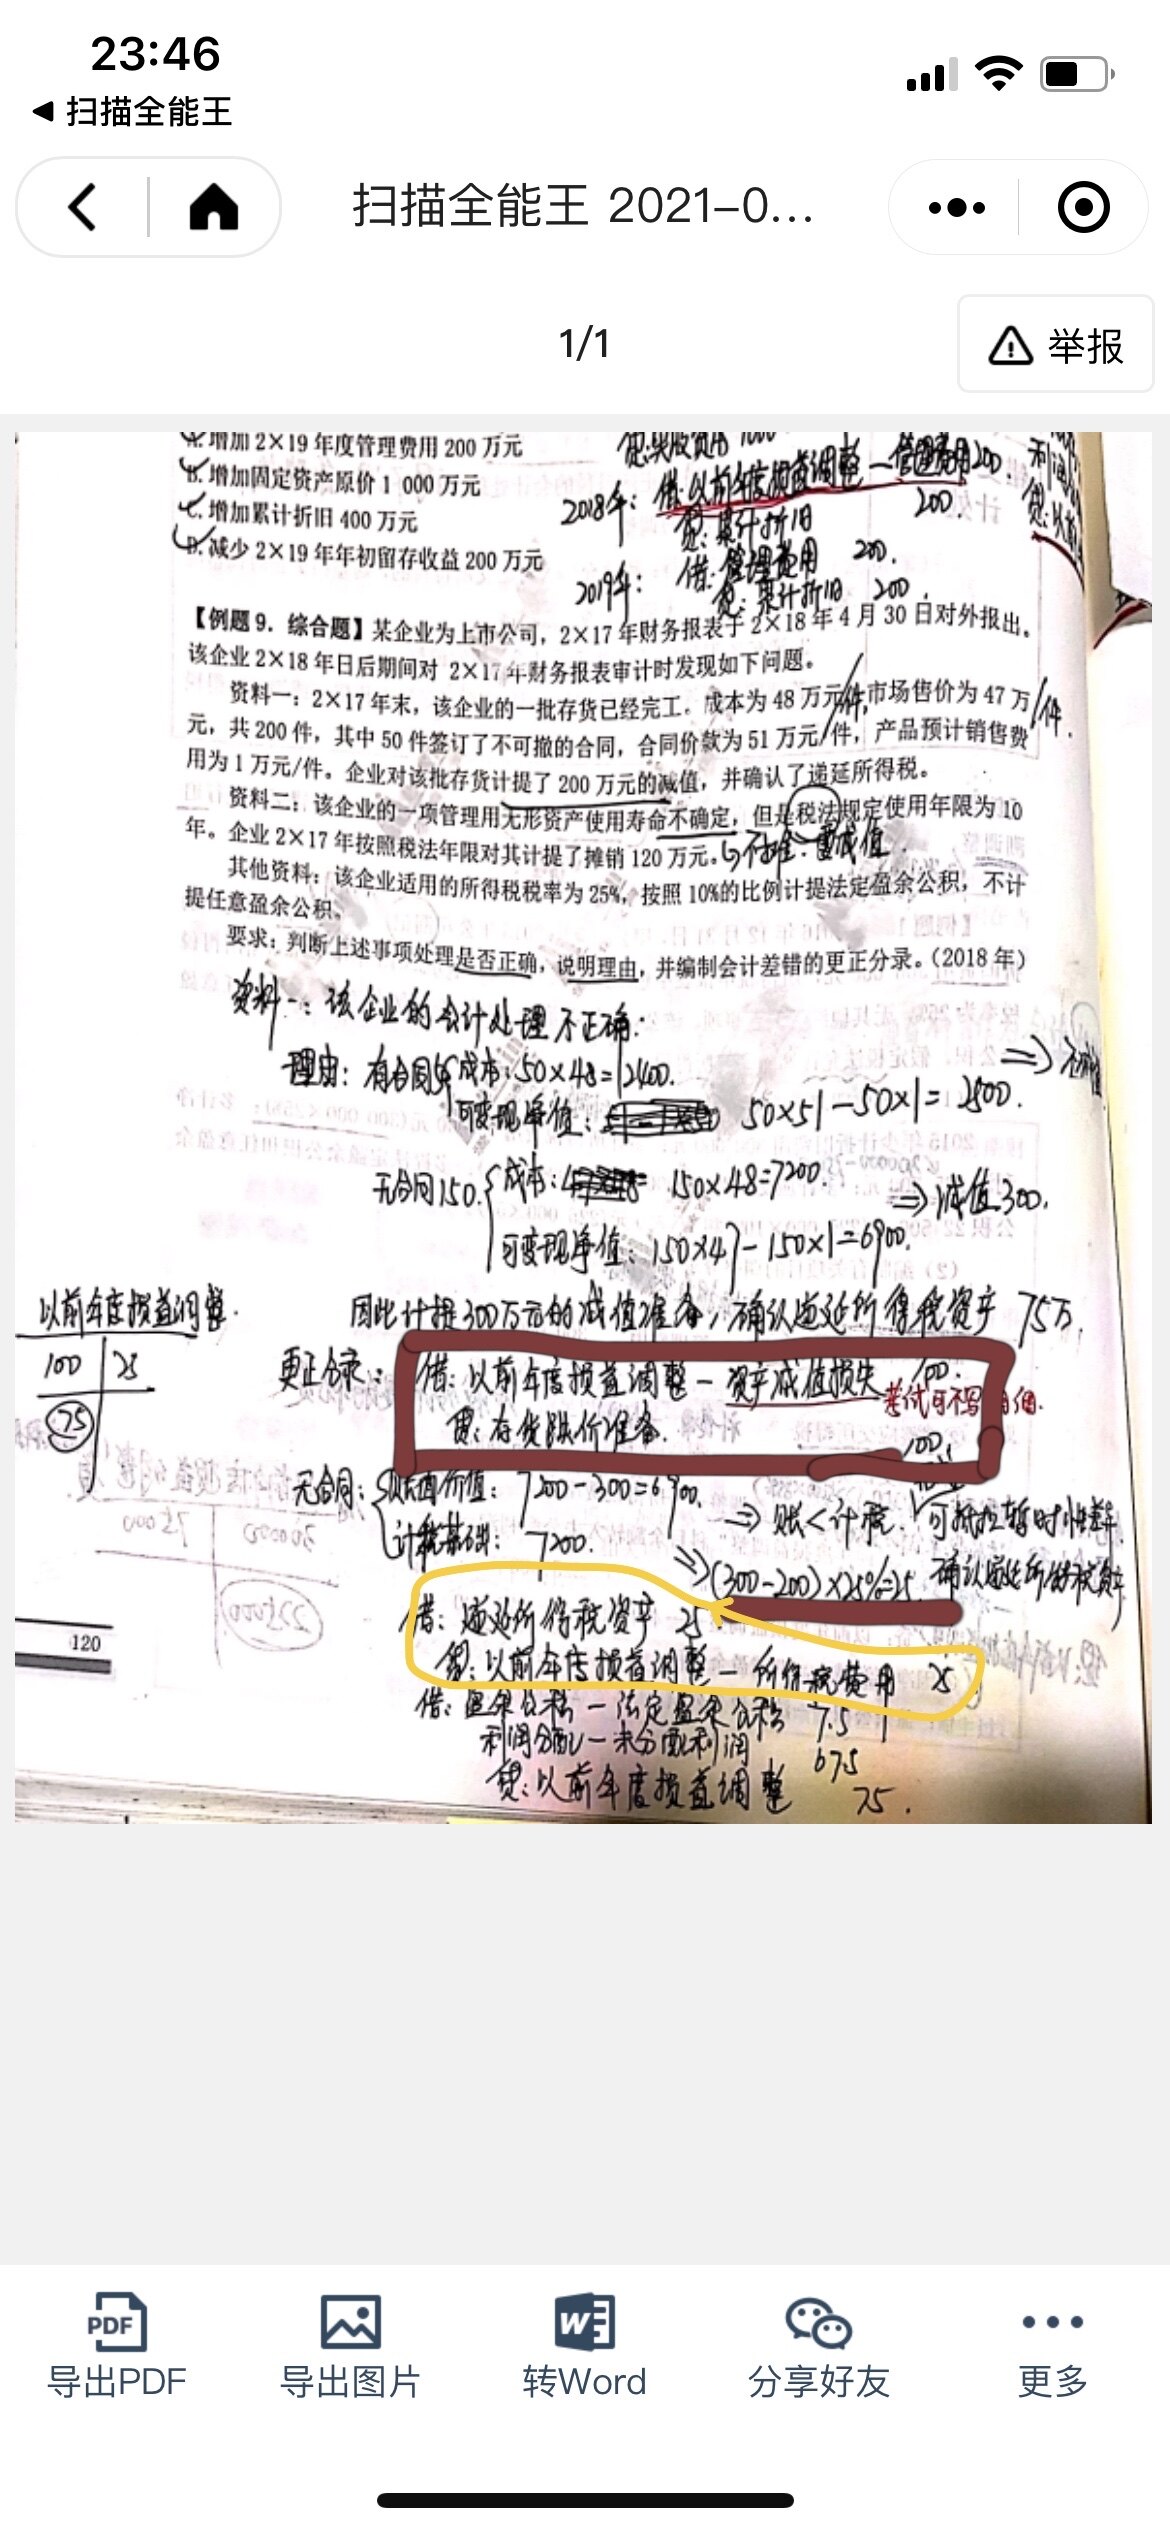 23:46
◀ 扫描全能王
扫描全能王 2021-0...
1/1
举报
A.增加 2×19 年度管理费用 200 万元
B.增加固定资产原价 1 000 万元
C.增加累计折旧 400 万元
D.减少 2×19 年年初留存收益 200 万元
2018年: 借:以前年度损益调整—管理费用200
贷:累计折旧 200
2019年: 借:管理费用 200.
贷:累计折旧 200.
【例题 9．综合题】某企业为上市公司，2×17 年财务报表于 2×18 年 4 月 30 日对外报出。
该企业 2×18 年日后期间对 2×17 年财务报表审计时发现如下问题。
资料一：2×17 年末，该企业的一批存货已经完工，成本为 48 万元/件,市场售价为 47 万/件.
元，共 200 件，其中 50 件签订了不可撤的合同，合同价款为 51 万元/件，产品预计销售费
用为 1 万元/件。企业对该批存货计提了 200 万元的减值，并确认了递延所得税。
资料二：该企业的一项管理用无形资产使用寿命不确定，但是税法规定使用年限为 10
年。企业 2×17 年按照税法年限对其计提了摊销 120 万元。
其他资料：该企业适用的所得税税率为 25%，按照 10%的比例计提法定盈余公积，不计
提任意盈余公积。
要求：判断上述事项处理是否正确，说明理由，并编制会计差错的更正分录。（2018 年）
资料一:该企业的会计处理不正确:
理由: 有合同50 成本:50×48=2400.
可变现净值: 50×51-50×1=2500.
无合同150. 成本: 150×48=7200. ⇒减值300.
可变现净值: 150×47-150×1=6900.
以前年度损益调整.
100 25
75
因此计提300万元的减值准备,确认递延所得税资产 75万.
更正分录: 借:以前年度损益调整—资产减值损失 100.
考试可不写明细.
贷:存货跌价准备. 100.
无合同: 账面价值: 7200-300=6900. ⇒ 账<计税. 可抵扣暂时性差异
计税基础: 7200.
⇒(300-200)×25%=25. 确认递延所得税资产
借:递延所得税资产 25
贷:以前年度损益调整—所得税费用 25
120
借:盈余公积—法定盈余公积 7.5
利润分配—未分配利润 67.5
贷:以前年度损益调整 75.
导出PDF
导出图片
转Word
分享好友
更多